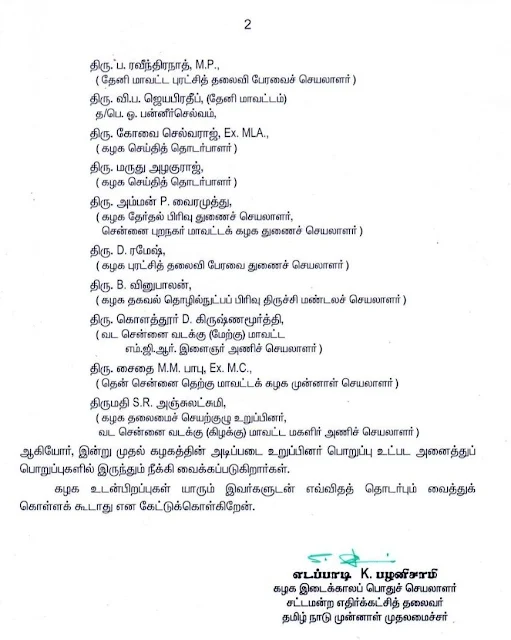 2
திரு. ப. ரவீந்திரநாத், M.P.,
( தேனி மாவட்ட புரட்சித் தலைவி பேரவைச் செயலாளர் )
திரு. வி.ப. ஜெயபிரதீப், (தேனி மாவட்டம்)
த/பெ. ஓ. பன்னீர்செல்வம்,
திரு. கோவை செல்வராஜ், Ex. MLA.,
( கழக செய்தித் தொடர்பாளர் )
திரு. மருது அழகுராஜ்,
( கழக செய்தித் தொடர்பாளர் )
திரு. அம்மன் P. வைரமுத்து,
( கழக தேர்தல் பிரிவு துணைச் செயலாளர்,
சென்னை புறநகர் மாவட்டக் கழக துணைச் செயலாளர் )
திரு. D. ரமேஷ்,
( கழக புரட்சித் தலைவி பேரவை துணைச் செயலாளர் )
திரு. B. வினுபாலன்,
( கழக தகவல் தொழில்நுட்பப் பிரிவு திருச்சி மண்டலச் செயலாளர் )
திரு. கொளத்தூர் D. கிருஷ்ணமூர்த்தி,
( வட சென்னை வடக்கு (மேற்கு) மாவட்ட
எம்.ஜி.ஆர். இளைஞர் அணிச் செயலாளர் )
திரு. சைதை M.M. பாபு, Ex. M.C.,
( தென் சென்னை தெற்கு மாவட்டக் கழக முன்னாள் செயலாளர் )
திருமதி S.R. அஞ்சுலட்சுமி,
( கழக தலைமைச் செயற்குழு உறுப்பினர்,
வட சென்னை வடக்கு (கிழக்கு) மாவட்ட மகளிர் அணிச் செயலாளர் )
ஆகியோர், இன்று முதல் கழகத்தின் அடிப்படை உறுப்பினர் பொறுப்பு உட்பட அனைத்துப்
பொறுப்புகளில் இருந்தும் நீக்கி வைக்கப்படுகிறார்கள்.
கழக உடன்பிறப்புகள் யாரும் இவர்களுடன் எவ்விதத் தொடர்பும் வைத்துக்
கொள்ளக் கூடாது என கேட்டுக்கொள்கிறேன்.
எடப்பாடி K. பழனிசாமி
கழக இடைக்காலப் பொதுச் செயலாளர்
சட்டமன்ற எதிர்க்கட்சித் தலைவர்
தமிழ் நாடு முன்னாள் முதலமைச்சர்